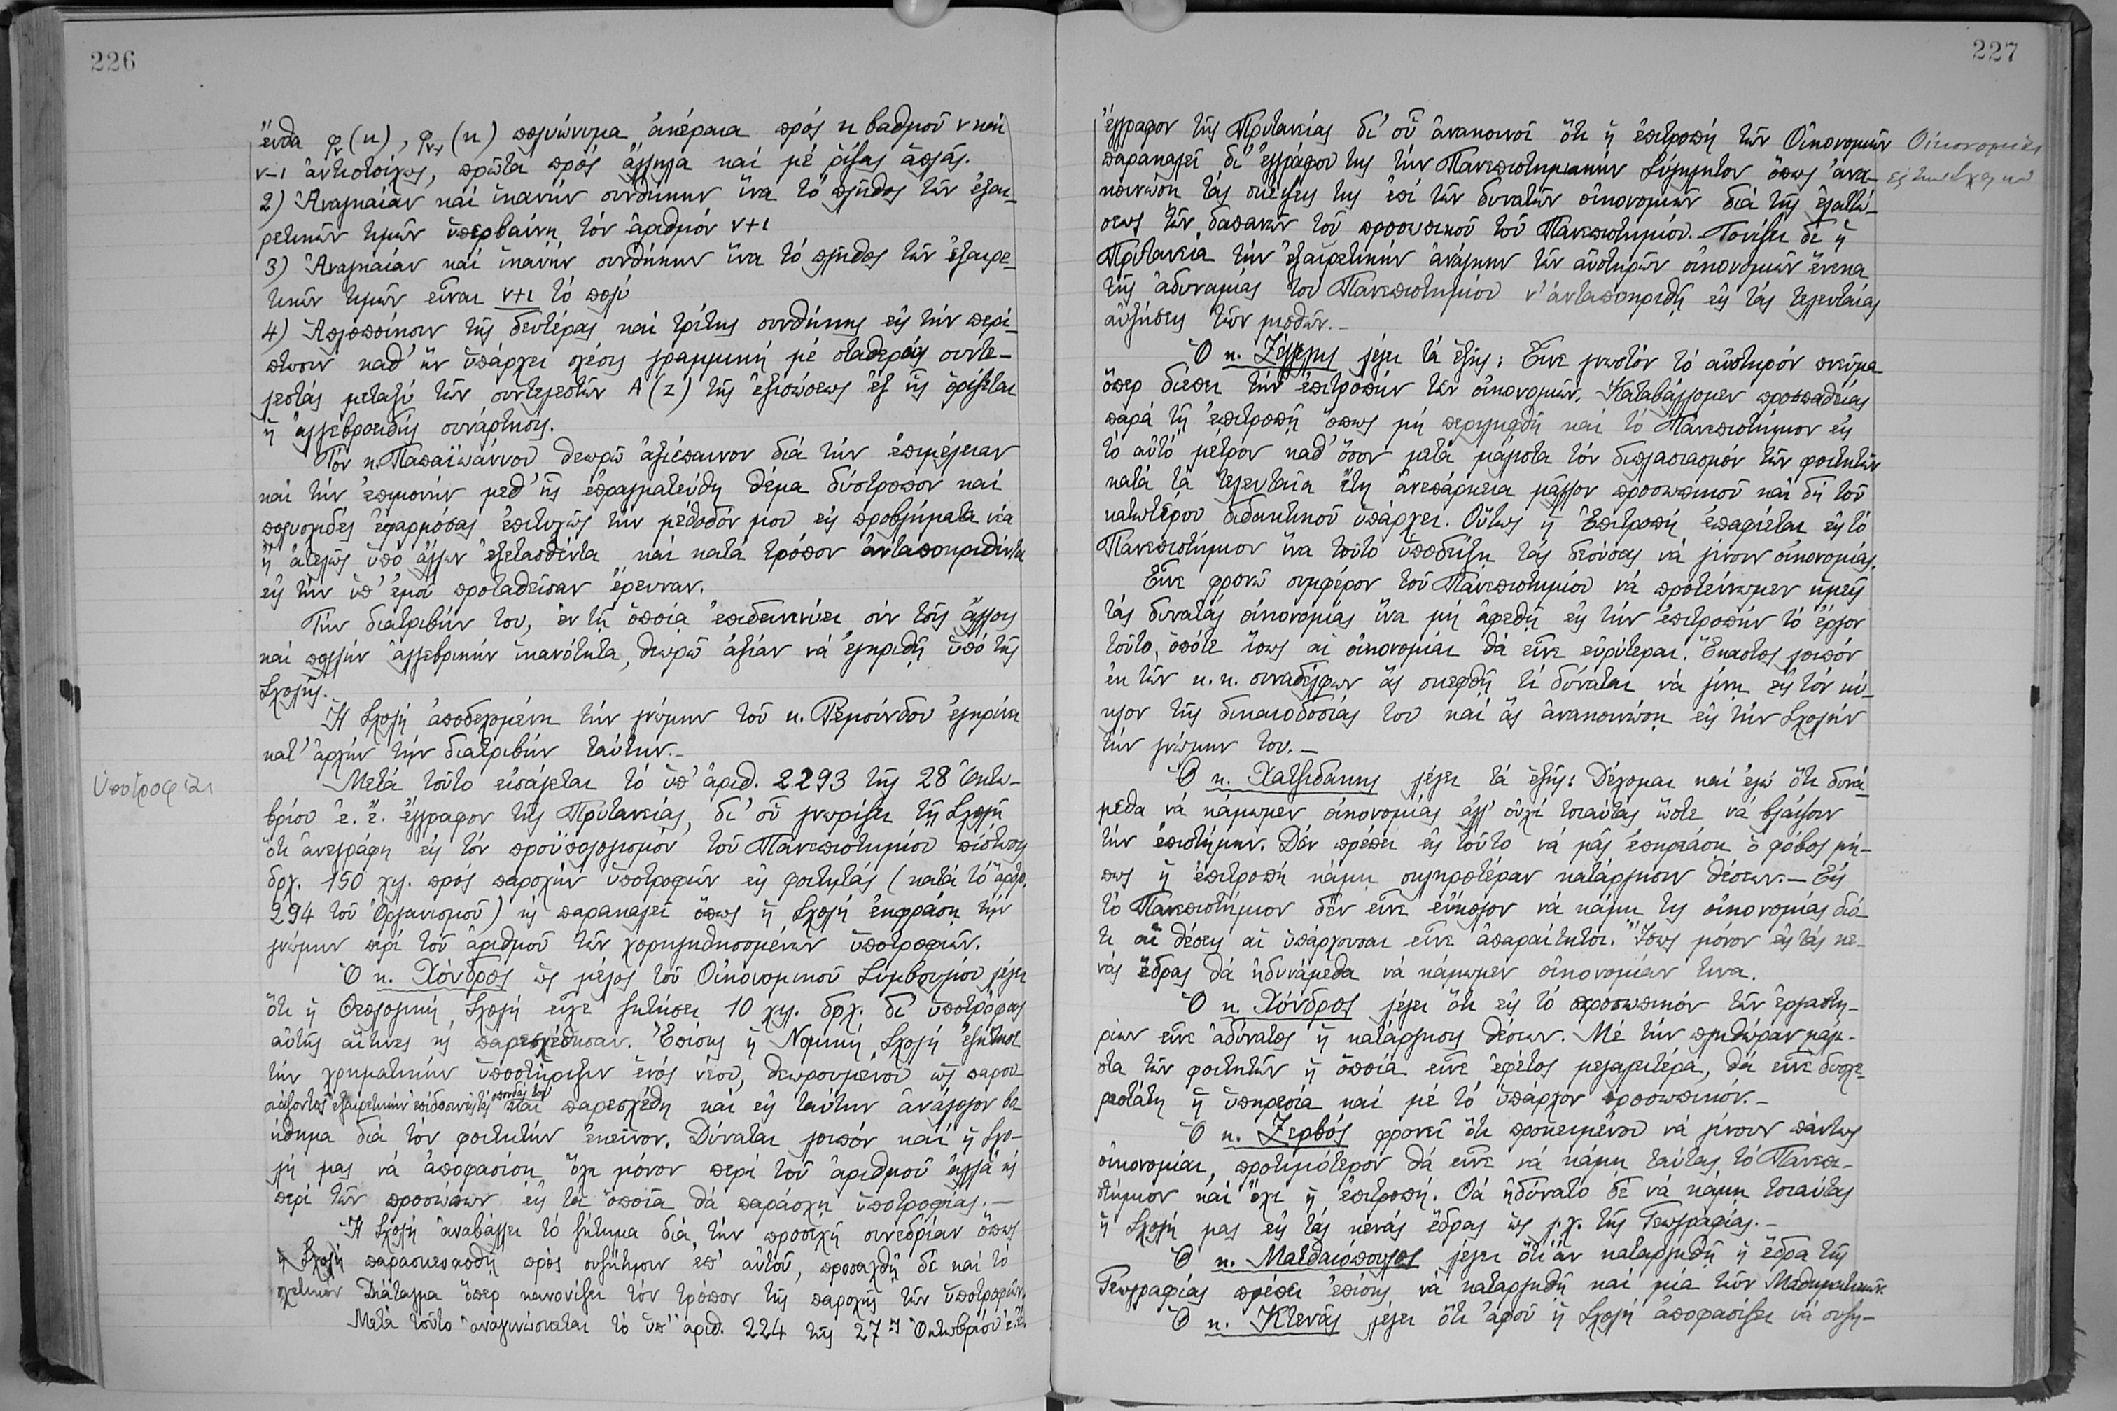 226
ἔνθα φν(u), φν-1(u) πολυώνυμα ἀκέραια πρός u βαθμοῦ ν καί
ν-1 ἀντιστοίχως, πρῶτα πρός ἄλληλα καί μέ ρίζας ἁπλᾶς.
2) Ἀναγκαίαν καί ἱκανήν συνθήκην ἵνα τό πλῆθος τῶν ἐξαι-
ρετικῶν τιμῶν ὑπερβαίνῃ τόν ἀριθμόν ν+1
3) Ἀναγκαίαν καί ἱκανήν συνθήκην ἵνα τό πλῆθος τῶν ἐξαιρε-
τικῶν τιμῶν εἶναι ν+1 τό πολύ
4) Ἁπλοποίησιν τῆς δευτέρας καί τρίτης συνθήκης εἰς τήν περί-
πτωσιν καθ' ἥν ὑπάρχει σχέσις γραμμική μέ σταθερούς συντε-
λεστάς μεταξύ τῶν συντελεστῶν A(z) τῆς ἐξισώσεως ἐξ ἧς ὁρίζεται
ἡ ἀλγεβροειδής συνάρτησις.
Τόν κ. Παπαϊωάννου θεωρῶ ἀξιέπαινον διά τήν ἐπιμέλειαν
καί τήν ἐπιμονήν μεθ' ἧς ἐπραγματεύθη θέμα δύστροπον καί
πολυσχιδές ἐφαρμόσας ἐπιτυχῶς τήν μέθοδόν μου εἰς προβλήματα νέα
ἤ ἀτελῶς ὑπό ἄλλων ἐξετασθέντα καί κατά τρόπον ἀνταποκριθέντα
εἰς τήν ὑπ' ἐμοῦ προταθεῖσαν ἔρευναν.
Τήν διατριβήν του, ἐν τῇ ὁποίᾳ ἐπιδεικνύει σύν τοῖς ἄλλοις
καί πολλήν ἀλγεβρικήν ἱκανότητα, θεωρῶ ἀξίαν νά ἐγκριθῇ ὑπό τῆς
Σχολῆς.
Ἡ Σχολή ἀποδεχομένη τήν γνώμην τοῦ κ. Ρεμούνδου ἐγκρίνει
κατ' ἀρχήν τήν διατριβήν ταύτην.-
Ὑποτροφίαι
Μετά τοῦτο εἰσάγεται τό ὑπ' ἀριθ. 2293 τῆς 28 Ὀκτω-
βρίου ἐ. ἔ. ἔγγραφον τῆς Πρυτανείας, δι' οὗ γνωρίζει τῇ Σχολῇ
ὅτι ἀνεγράφη εἰς τόν προϋπολογισμόν τοῦ Πανεπιστημίου πίστωσις
δρχ. 150 χιλ. πρός παροχήν ὑποτροφιῶν εἰς φοιτητάς (κατά τό ἄρθρ.
294 τοῦ Ὀργανισμοῦ) κ παρακαλεῖ ὅπως ἡ Σχολή ἐκφράσῃ τήν
γνώμην περί τοῦ ἀριθμοῦ τῶν χορηγηθησομένων ὑποτροφιῶν.
Ὁ κ. Χόνδρος ὡς μέλος τοῦ Οἰκονομικοῦ Συμβουλίου λέγει
ὅτι ἡ Θεολογική Σχολή εἶχε ζητήσει 10 χιλ. δρχ. δι' ὑποτρόφους
αὐτῆς αἵτινες κ παρεσχέθησαν. Ἐπίσης ἡ Νομική Σχολή ἐζήτησε
τήν χρηματικήν ὑποστήριξιν ἑνός νέου, θεωρουμένου ὡς παρου-
σιάζοντος ἐξαιρετικήν ἐπίδοσιν εἰς τάς σπουδάς του καί παρεσχέθη καί εἰς ταύτην ἀνάλογον βο-
ήθημα διά τόν φοιτητήν ἐκεῖνον. Δύναται λοιπόν καί ἡ Σχο-
λή μας νά ἀποφασίσῃ ὄχι μόνον περί τοῦ ἀριθμοῦ ἀλλά κ
περί τῶν προσώπων εἰς τά ὁποῖα θά παράσχῃ ὑποτροφίας.-
Ἡ Σχολή ἀναβάλλει τό ζήτημα διά τήν προσεχῆ συνεδρίαν ὅπως
ἡ Σχολή παρασκευασθῇ πρός συζήτησιν ἐπ' αὐτοῦ, προσαχθῇ δέ καί τό
σχετικόν Διάταγμα ὅπερ κανονίζει τόν τρόπον τῆς παροχῆς τῶν ὑποτροφιῶν.
Μετά τοῦτο ἀναγινώσκεται τό ὑπ' ἀριθ. 224 τῆς 27ης Ὀκτωβρίου ἐ.ἔ.
227
ἔγγραφον τῆς Πρυτανείας δι' οὗ ἀνακοινοῖ ὅτι ἡ ἐπιτροπή τῶν Οἰκονομιῶν
Οἰκονομίαι
παρακαλεῖ δι' ἐγγράφου της τήν Πανεπιστημιακήν Σύγκλητον ὅπως ἀνα-
κοινώσῃ τάς σκέψεις της ἐπί τῶν δυνατῶν οἰκονομιῶν διά τῆς ἐλαττώ-
σεως τῶν δαπανῶν τοῦ προσωπικοῦ τοῦ Πανεπιστημίου. Τονίζει δέ ἡ
Πρυτανεία τήν ἐξαιρετικήν ἀνάγκην τῶν αὐστηρῶν οἰκονομιῶν ἕνεκα
τῆς ἀδυναμίας τοῦ Πανεπιστημίου ν' ἀνταποκριθῇ εἰς τάς τελευταίας
αὐξήσεις τῶν μισθῶν.-
Ὁ κ. Ζέγγελης λέγει τά ἑξῆς: Εἶνε γνωστόν τό αὐστηρόν πνεῦμα
ὅπερ διέπει τήν ἐπιτροπήν τῶν οἰκονομιῶν. Καταβάλλομεν προσπαθείας
παρά τῇ ἐπιτροπῇ ὅπως μή περιληφθῇ καί τό Πανεπιστήμιον εἰς
τό αὐτό μέτρον καθ' ὅσον μετά μάλιστα τόν διπλασιασμόν τῶν φοιτητῶν
κατά τά τελευταῖα ἔτη ἀνεπάρκεια μᾶλλον προσωπικοῦ καί δή τοῦ
κατωτέρου διδακτικοῦ ὑπάρχει. Οὕτως ἡ Ἐπιτροπή ἐπαφίεται εἰς τό
Πανεπιστήμιον ἵνα τοῦτο ὑποδείξῃ τάς δεούσας νά γίνουν οἰκονομίας.
Εἶνε φρονῶ συμφέρον τοῦ Πανεπιστημίου νά προτείνωμεν ἡμεῖς
τάς δυνατάς οἰκονομίας ἵνα μή ἀφεθῇ εἰς τήν ἐπιτροπήν τό ἔργον
τοῦτο, ὁπότε ἴσως αἱ οἰκονομίαι θά εἶνε εὐρύτεραι. Ἕκαστος λοιπόν
ἐκ τῶν κ.κ. συναδέλφων ἄς σκεφθῇ τί δύναται νά γίνῃ εἰς τόν κύ-
κλον τῆς δικαιοδοσίας του καί ἄς ἀνακοινώσῃ εἰς τήν Σχολήν
τήν γνώμην του.-
Ὁ κ. Χατζιδάκης λέγει τά ἑξῆς: Δέχομαι καί ἐγώ ὅτι δυνά-
μεθα νά κάμωμεν οἰκονομίας ἀλλ' οὐχί τοιαύτας ὥστε νά βλάψουν
τήν ἐπιστήμην. Δέν πρέπει εἰς τοῦτο νά μᾶς ἐπηρεάσῃ ὁ φόβος μή-
πως ἡ ἐπιτροπή κάμῃ σκληροτέραν κατάργησιν θέσεων.- Εἰς
τό Πανεπιστήμιον δέν εἶνε εὔκολον νά κάμῃ τις οἰκονομίας διό-
τι αἱ θέσεις αἱ ὑπάρχουσαι εἶνε ἀπαραίτητοι. Ἴσως μόνον εἰς τάς κε-
νάς ἕδρας θά ἠδυνάμεθα νά κάμωμεν οἰκονομίαν τινα.
Ὁ κ. Χόνδρος λέγει ὅτι εἰς τό προσωπικόν τῶν ἐργαστη-
ρίων εἶνε ἀδύνατος ἡ κατάργησις θέσεων. Μέ τήν πληθώραν μάλι-
στα τῶν φοιτητῶν ἡ ὁποία εἶνε ἐφέτος μεγαλειτέρα, θά εἶνε δυσχε-
ρεστάτη ἡ ὑπηρεσία καί μέ τό ὑπάρχον προσωπικόν.-
Ὁ κ. Ζερβός φρονεῖ ὅτι προκειμένου νά γίνουν πάντως
οἰκονομίαι, προτιμότερον θά εἶνε νά κάμῃ ταύτας τό Πανεπι-
στήμιον καί ὄχι ἡ ἐπιτροπή. Θά ἠδύνατο δέ νά κάμῃ τοιαύτας
ἡ Σχολή μας εἰς τάς κενάς ἕδρας ὡς λ.χ. τῆς Γεωγραφίας.-
Ὁ κ. Ματθαιόπουλος λέγει ὅτι ἄν καταργηθῇ ἡ ἕδρα τῆς
Γεωγραφίας πρέπει ἐπίσης νά καταργηθῇ καί μία τῶν Μαθηματικῶν
Ὁ κ. Κτενᾶς λέγει ὅτι ἀφοῦ ἡ Σχολή ἀποφασίζει νά συζη-